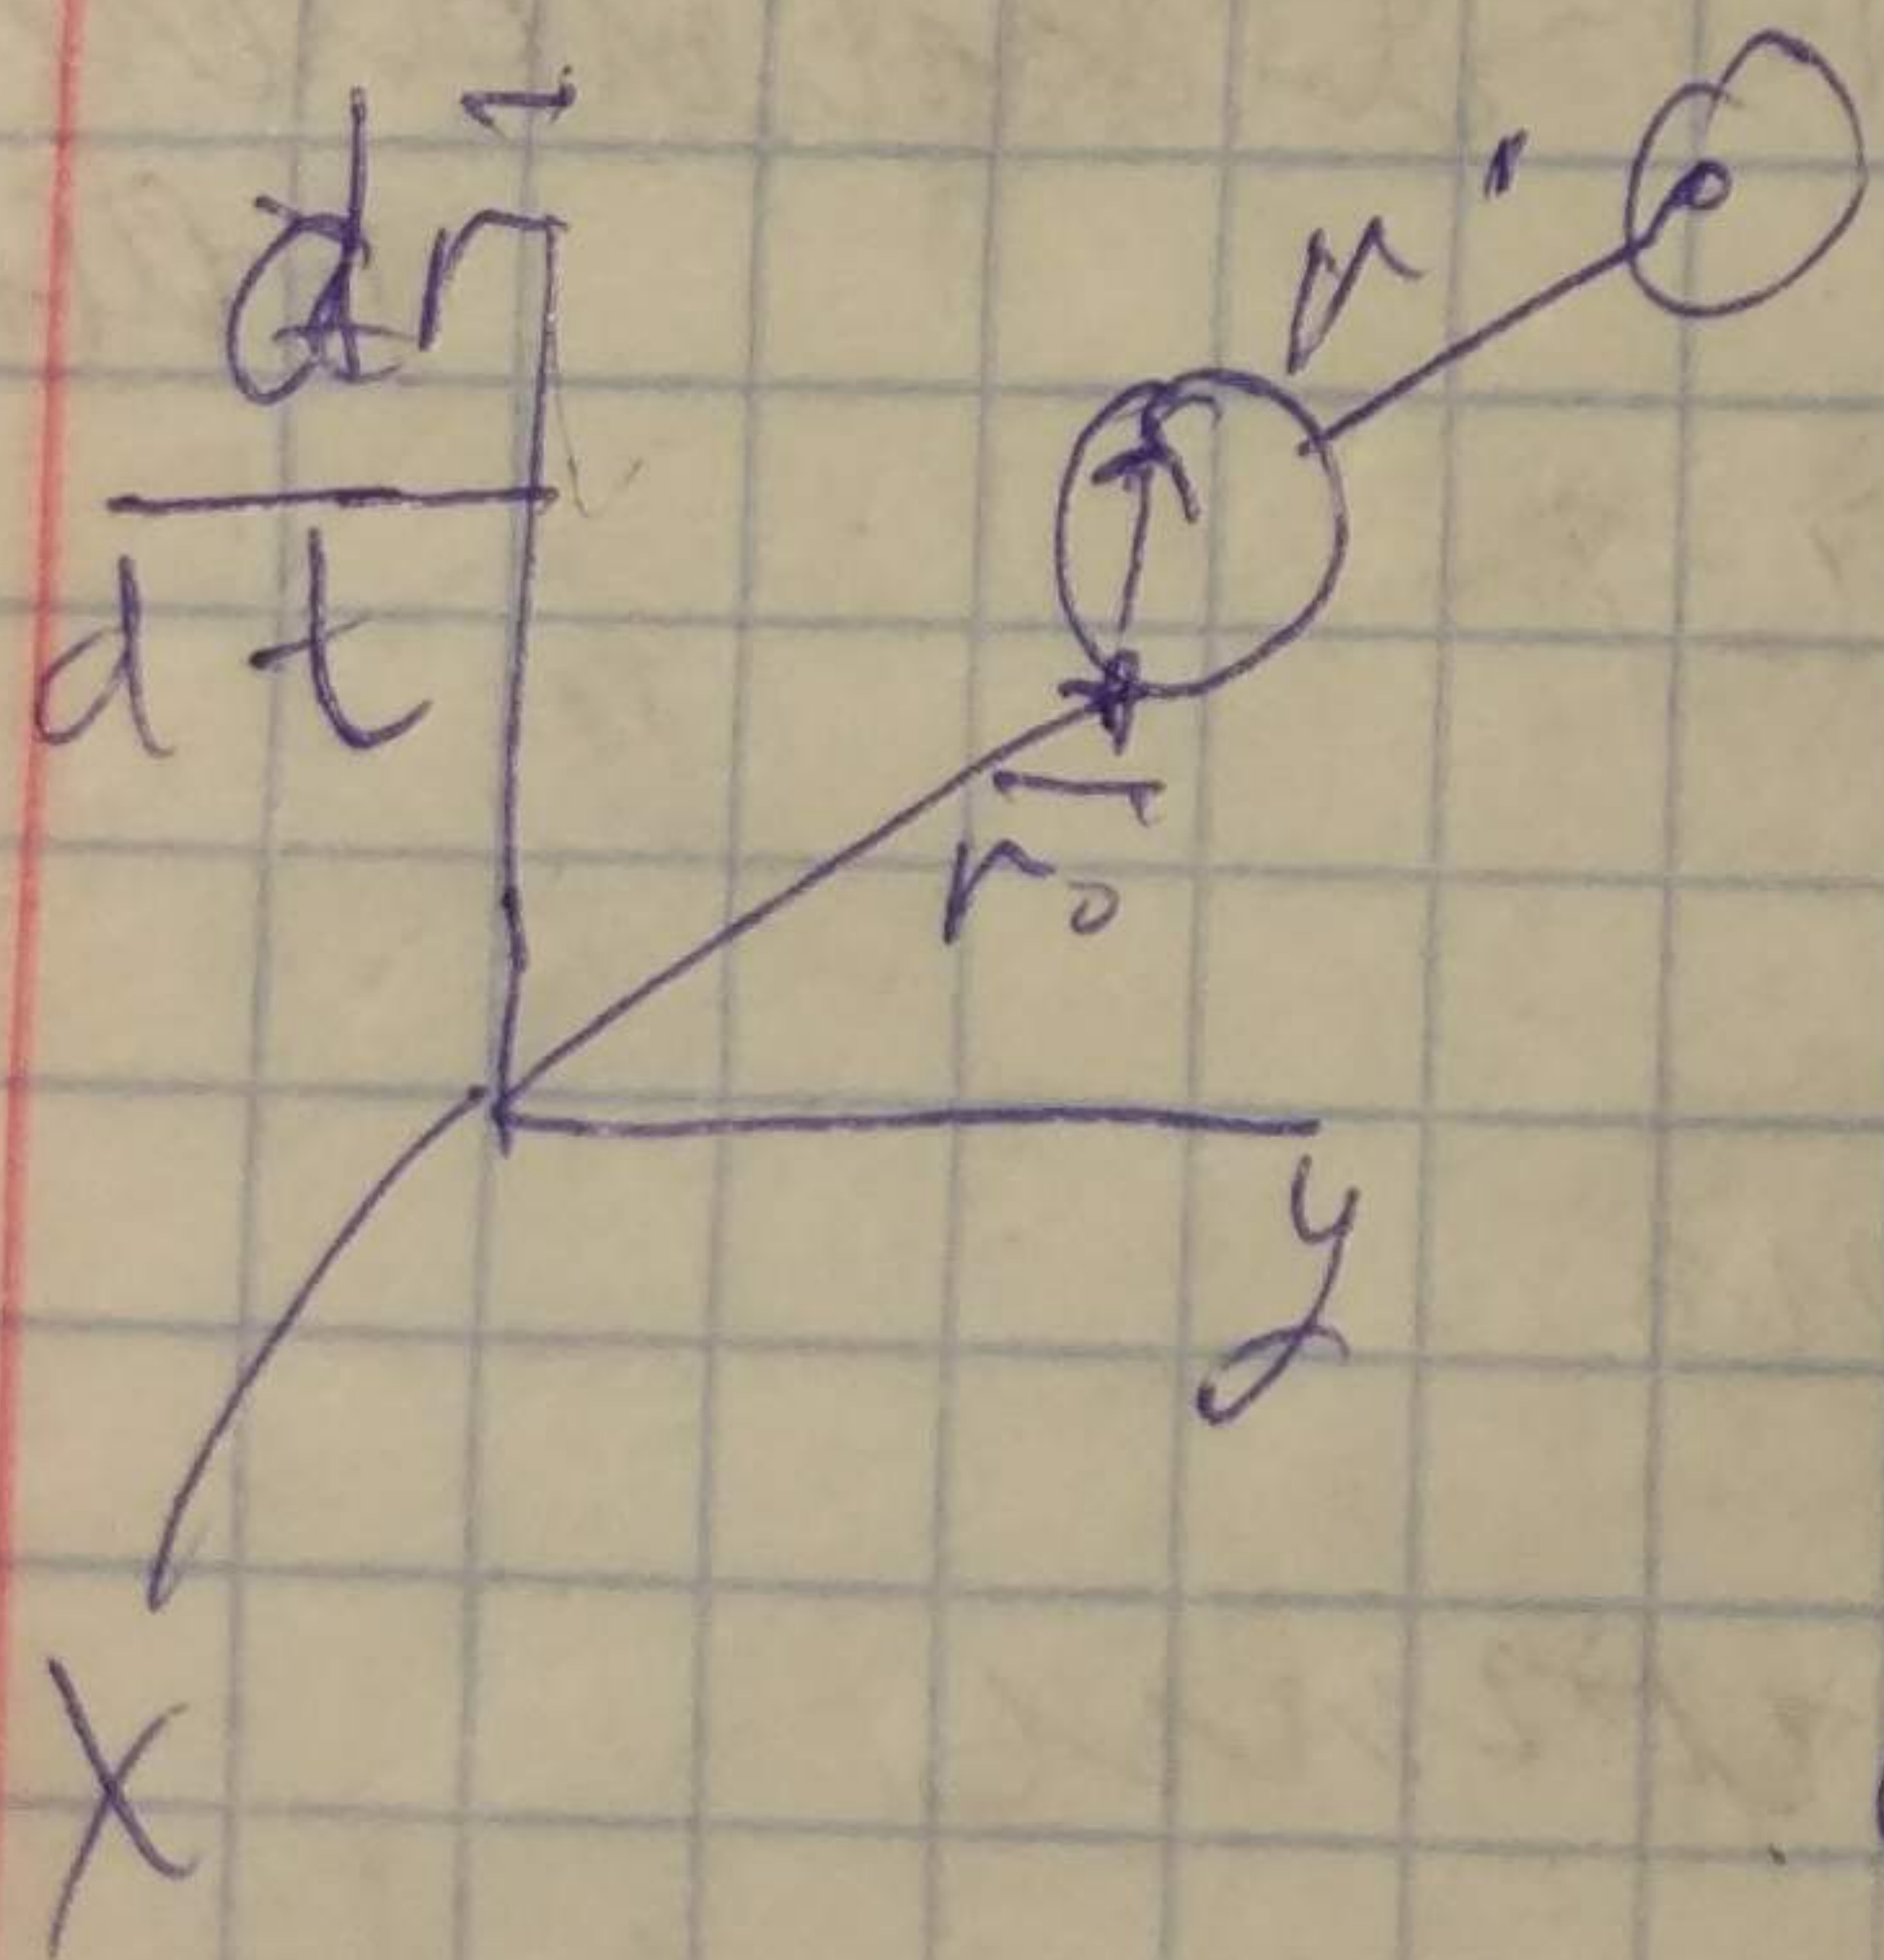 dr⃗
d t
r"
r⃗₀
y
X